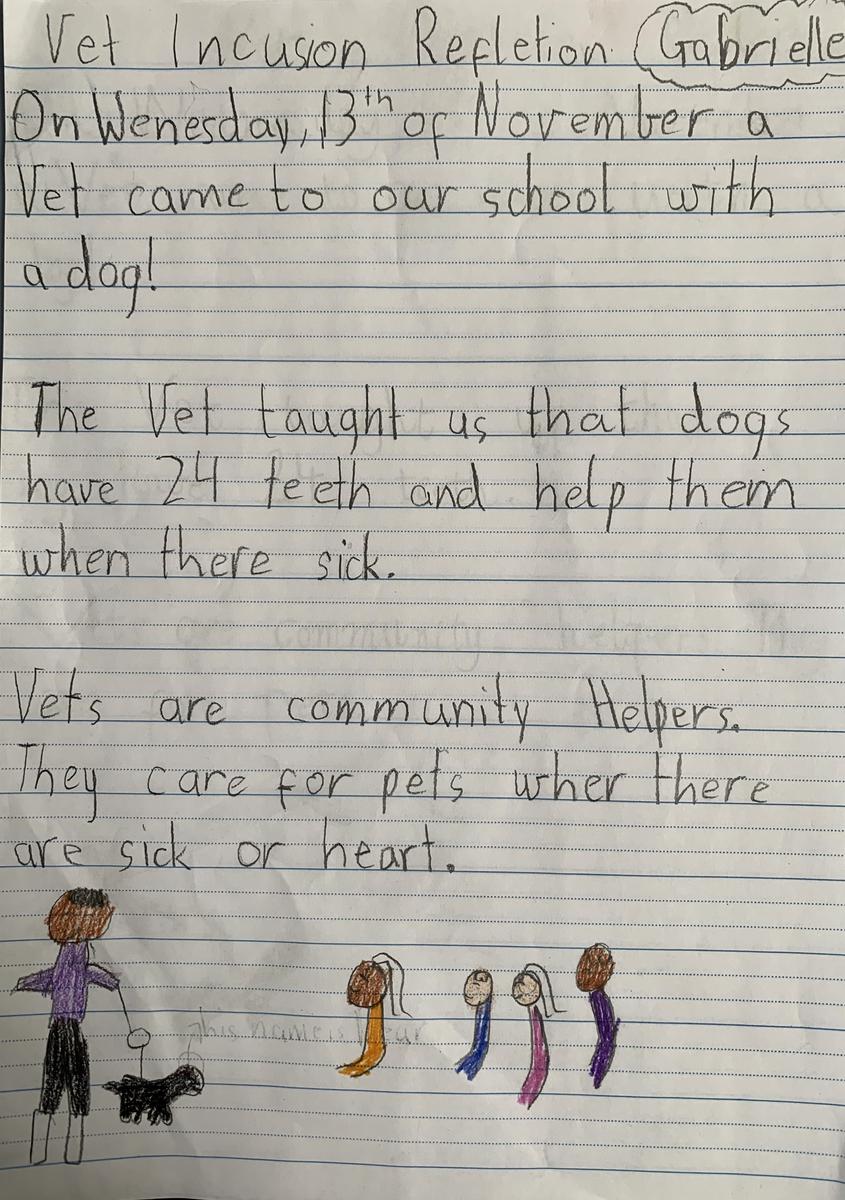 Vet Incusion Refletion. Gabrielle
On Wenesday, 13th of November a
Vet came to our school with
a dog!
The Vet taught us that dogs
have 24 teeth and help them
when there sick.
Vets are community Helpers.
They care for pets wher there
are sick or heart.
his name is